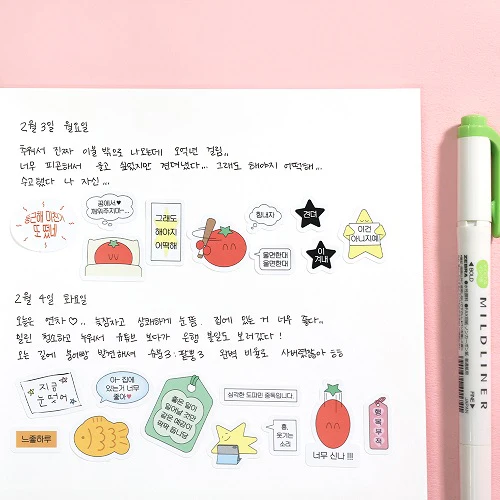 2월 3일 월요일
추워서 진짜 이불 밖으로 나오는데 오억년 걸림,,
너무 피곤해서 울고 싶었지만 견뎌냈다... 그래도 해야지 어떡해..
수고했다 나 자신...
출근해 미친
또 떴네
꿈에서♥
깨워주지마~...
그래도
해야지
어떡해
힘내자
울면안대
울면안대
견뎌
이겨내
이건
아니지예
2월 4일 화요일
오늘은 연차♡.. 늦잠자고 상쾌하게 눈뜸. 집에 있는 거 너무 좋다..
밀린 청소하고 누워서 유튜브 보다가 은행 볼일도 보러갔다!
오는 길에 붕어빵 발견해서 슈붕3. 팥붕3 완벽 비율로 사버렸잖아 ㅎㅎ
지금
눈 멎어
아~ 집에
있는거 너무
좋아♥
좋은 일이
일어날 것만
같은 예감이
팍팍 듭니당
심각한 도파민 중독입니다.
행복부적
느좋하루
흠,
웃기는
소리
너무 신나!!!
MILDLINER
ZEBRA
BOLD
FINE
JAPAN